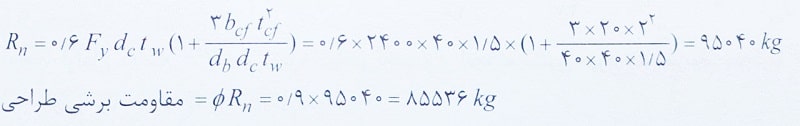 Rₙ = ۰/۶ F_y d_c t_w (۱ + ۳ b_cf t²_cf / d_b d_c t_w) = ۰/۶ × ۲۴۰۰ × ۴۰ × ۱/۵ × (۱ + ۳ × ۲۰ × ۲² / ۴۰ × ۴۰ × ۱/۵) = ۹۵۰۴۰ kg
مقاومت برشی طراحی = ϕRₙ = ۰/۹ × ۹۵۰۴۰ = ۸۵۵۳۶ kg